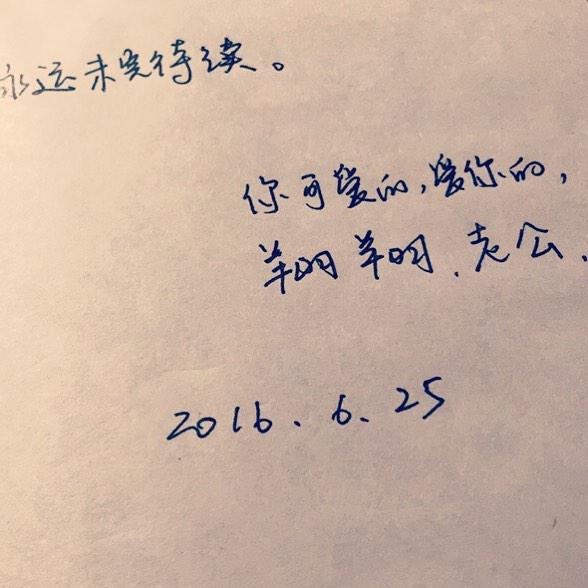 永远未完待续。
你可爱的,爱你的,
羊明羊明、老公、
2016.6.25